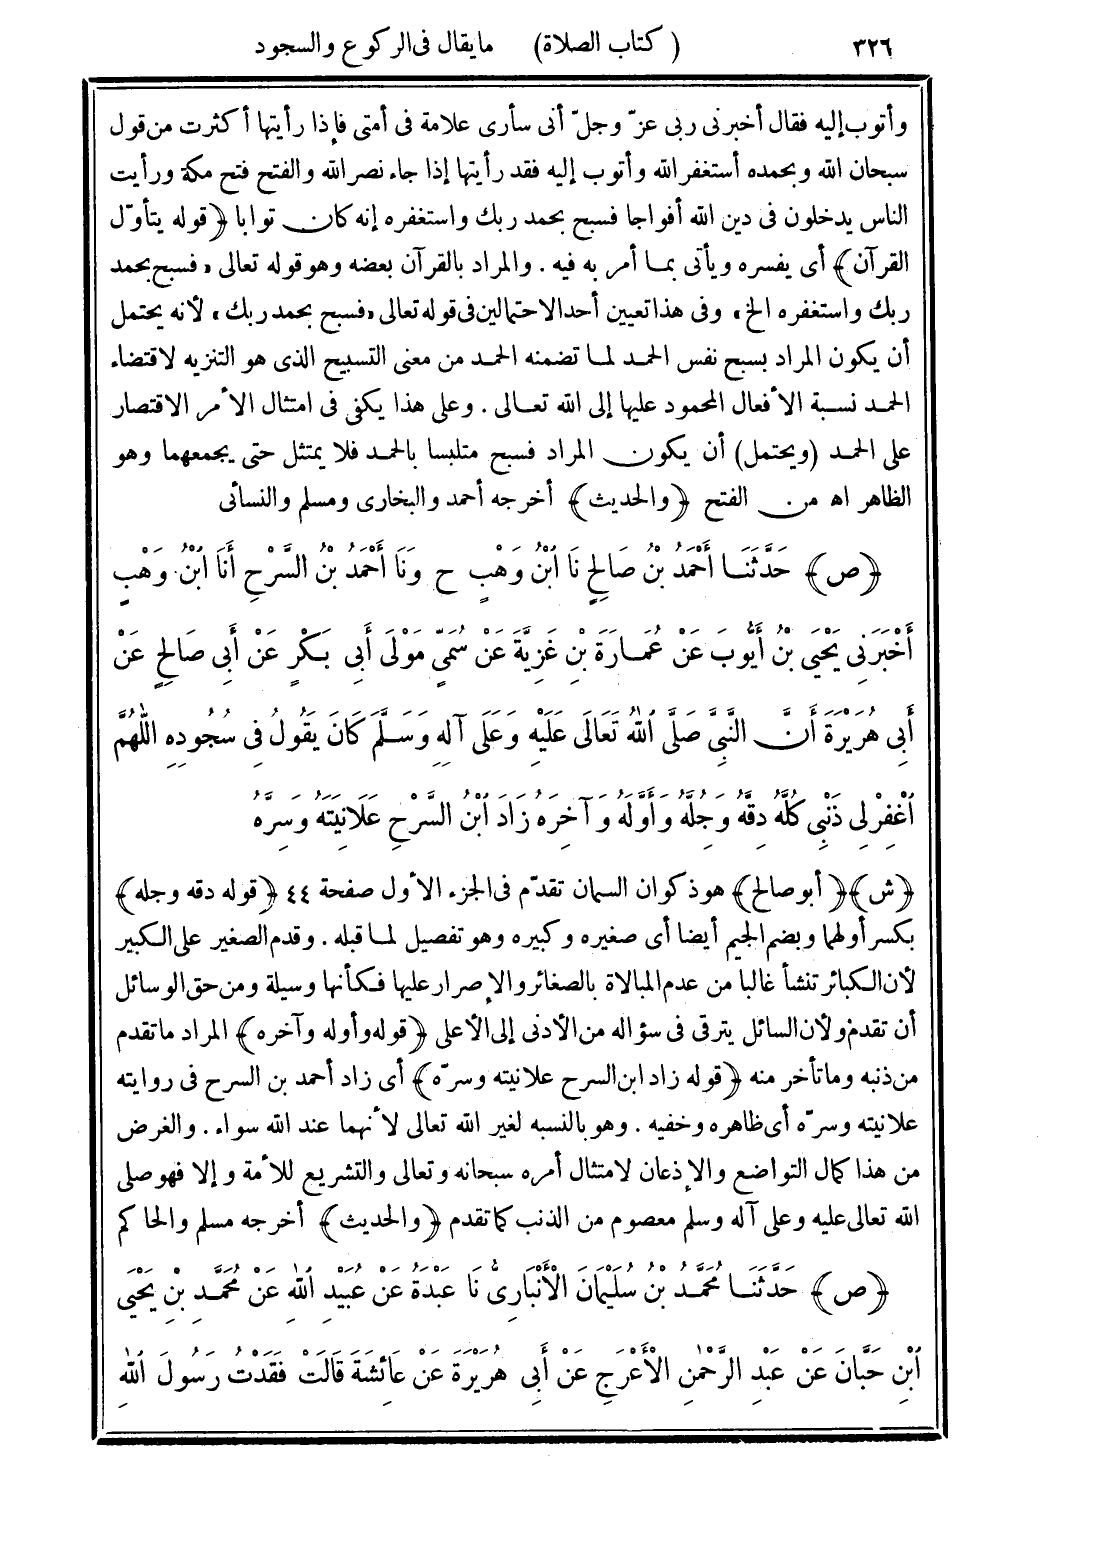 ٣٢٦ (كتاب الصلاة) ما يقال فى الركوع والسجود
وأتوب إليه فقال أخبرنى ربى عزّ وجلّ أنى سأرى علامة فى أمتى فإذا رأيتها أكثرت من قول
سبحان الله وبحمده أستغفر الله وأتوب إليه فقد رأيتها إذا جاء نصر الله والفتح فتح مكة ورأيت
الناس يدخلون فى دين الله أفواجا فسبح بحمد ربك واستغفره إنه كان توابا ﴿قوله يتأوّل
القرآن﴾ أى يفسره ويأتى بما أمر به فيه . والمراد بالقرآن بعضه وهو قوله تعالى «فسبح بحمد
ربك واستغفره الخ» وفى هذا تعيين أحد الاحتمالين فى قوله تعالى «فسبح بحمد ربك» لأنه يحتمل
أن يكون المراد بسبح نفس الحمد لما تضمنه الحمد من معنى التسبيح الذى هو التنزيه لاقتضاء
الحمد نسبة الأفعال المحمود عليها إلى الله تعالى . وعلى هذا يكفى فى امتثال الأمر الاقتصار
على الحمد (ويحتمل) أن يكون المراد فسبح متلبسا بالحمد فلا يمتثل حتى يجمعهما وهو
الظاهر اه من الفتح ﴿والحديث﴾ أخرجه أحمد والبخارى ومسلم والنسائى
﴿ص﴾ حَدَّثَنَا أَحْمَدُ بْنُ صَالِحٍ نَا ابْنُ وَهْبٍ ح وَنَا أَحْمَدُ بْنُ السَّرْحِ أَنَا ابْنُ وَهْبٍ
أَخْبَرَنِى يَحْيَى بْنُ أَيُّوبَ عَنْ عُمَارَةَ بْنِ غَزِيَّةَ عَنْ سُمَىٍّ مَوْلَى أَبِى بَكْرٍ عَنْ أَبِى صَالِحٍ عَنْ
أَبِى هُرَيْرَةَ أَنَّ النَّبِىَّ صَلَّى اللهُ تَعَالَى عَلَيْهِ وَعَلَى آلِهِ وَسَلَّمَ كَانَ يَقُولُ فِى سُجُودِهِ اللّٰهُمَّ
اغْفِرْلِى ذَنْبِى كُلَّهُ دِقَّهُ وَجُلَّهُ وَأَوَّلَهُ وَآخِرَهُ زَادَ ابْنُ السَّرْحِ عَلَانِيَتَهُ وَسِرَّهُ
﴿ش﴾ ﴿أبو صالح﴾ هو ذكوان السمان تقدّم فى الجزء الأول صفحة ٤٤ ﴿قوله دقه وجله﴾
بكسر أولهما وبضم الجيم أيضا أى صغيره وكبيره وهو تفصيل لما قبله . وقدم الصغير على الكبير
لأن الكبائر تنشأ غالبا من عدم المبالاة بالصغائر والإصرار عليها فكأنها وسيلة ومن حق الوسائل
أن تقدم ولأن السائل يترقى فى سؤاله من الأدنى إلى الأعلى ﴿قوله وأوله وآخره﴾ المراد ما تقدم
من ذنبه وما تأخر منه ﴿قوله زاد ابن السرح علانيته وسرّه﴾ أى زاد أحمد بن السرح فى روايته
علانيته وسرّه أى ظاهره وخفيه . وهو بالنسبه لغير الله تعالى لأنهما عند الله سواء . والغرض
من هذا كمال التواضع والإذعان لامتثال أمره سبحانه وتعالى والتشريع للأمة وإلا فهو صلى
الله تعالى عليه وعلى آله وسلم معصوم من الذنب كما تقدم ﴿والحديث﴾ أخرجه مسلم والحاكم
﴿ص﴾ حَدَّثَنَا مُحَمَّدُ بْنُ سُلَيْمَانَ الْأَنْبَارِىُّ نَا عَبْدَةُ عَنْ عُبَيْدِ اللهِ عَنْ مُحَمَّدِ بْنِ يَحْيَى
ابْنِ حَبَّانَ عَنْ عَبْدِ الرَّحْمٰنِ الْأَعْرَجِ عَنْ أَبِى هُرَيْرَةَ عَنْ عَائِشَةَ قَالَتْ فَقَدْتُ رَسُولَ اللهِ